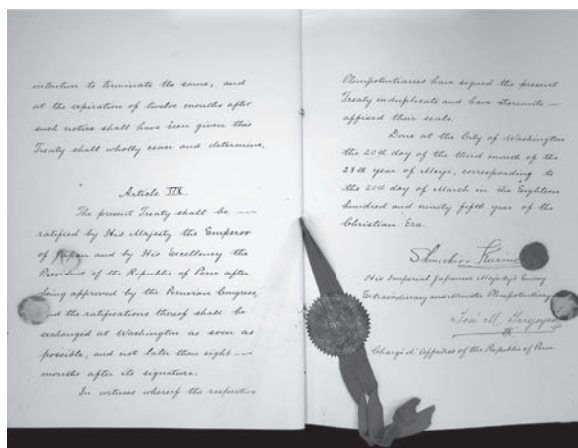 intention to terminate the same, and
at the expiration of twelve months after
such notice shall have been given this
Treaty shall wholly cease and determine.
Article
The present Treaty shall be
ratified by His Majesty the Emperor
of Japan and by His Excellency the
President of the Republic of Peru after
being approved by the Peruvian Congress,
and the ratifications thereof shall be
exchanged at Washington as soon as
possible, and not later than eight
months after its signature.
In witness whereof the respective
Plenipotentiaries have signed the present
Treaty in duplicate and have thereunto
affixed their seals.
Done at the City of Washington
the 20th day of the third month of the
28th year of Meiji, corresponding to
the 20th day of March in the Eighteen
hundred and ninety fifth year of the
Christian Era.
His Imperial Japanese Majesty's Envoy
Extraordinary and Minister Plenipotentiary
José M.
Chargé d'Affaires of the Republic of Peru